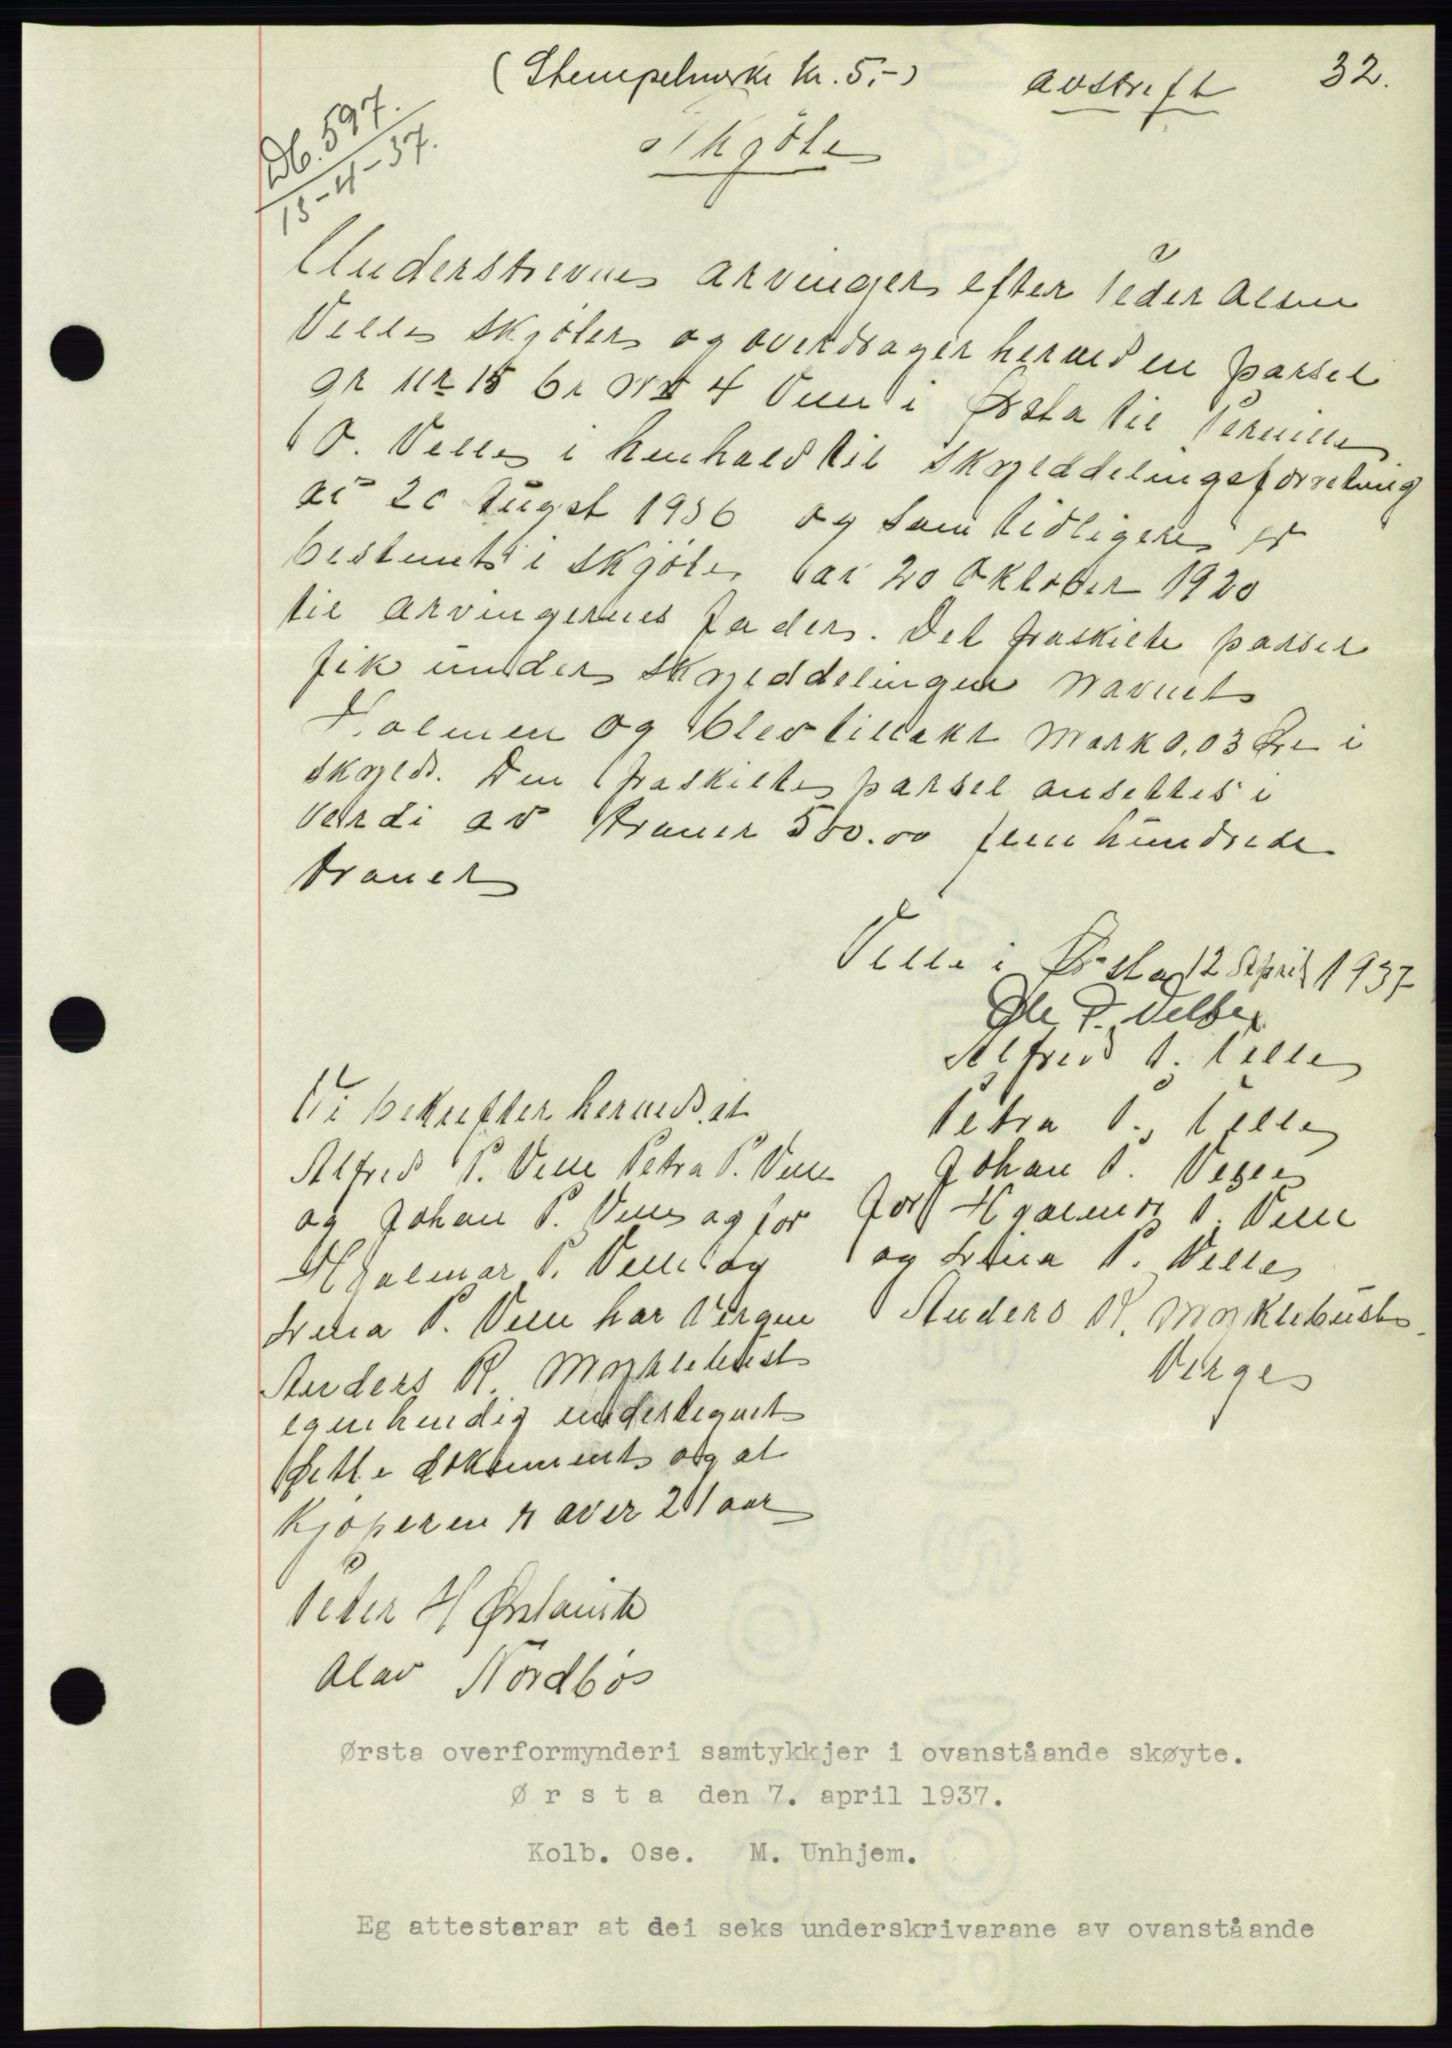 (Stempelmerke kr. 5.-)
avskrift
32.
Db. 597.
13-4-37.
Skjöte
Understrevne arvinger efter Peder Olsen
Velle skjöter og overdrager herved en parsel
gr nr 15 br nr 4 Velle i Ørsta til Pernille
O. Velle i henhold til skylddelingsforretning
av 20 August 1936 og som tidligere er
bestemt i skjöte av 20 Oktober 1920
til arvingernes fader. Det fraskilte parsel
fik under skylddelingen navnet
Holmen og blev tillakt Mark 0,03 Øre i
skyld. Den fraskilte parsel ansettes i
Verdi av kroner 500.00 fem hundrede
kroner
Velle i Ørsta 12 April 1937
Ole P. Velle
Alfred P. Velle
Petra P. Velle
Johan P. Velle
for Hjalmar P. Velle
og Lina P. Velle
Anders R. Myklebust
Verge
Vi bekrefter herved at
Alfred P. Velle Petra P. Velle
og Johan P. Velle og for
Hjalmar P. Velle og
Lina P. Velle har Vergen
Anders R. Myklebust
egenhendig undertegnet
dette dokument og at
kjöperen er over 21 aar
Peter H Ørstavik
Olav Nordbö
Ørsta overformynderi samtykkjer i ovanståande skøyte.
Ø r s t a den 7. april 1937.
Kolb. Ose. M. Unhjem.
Eg attesterar at dei seks underskrivarane av ovanståande